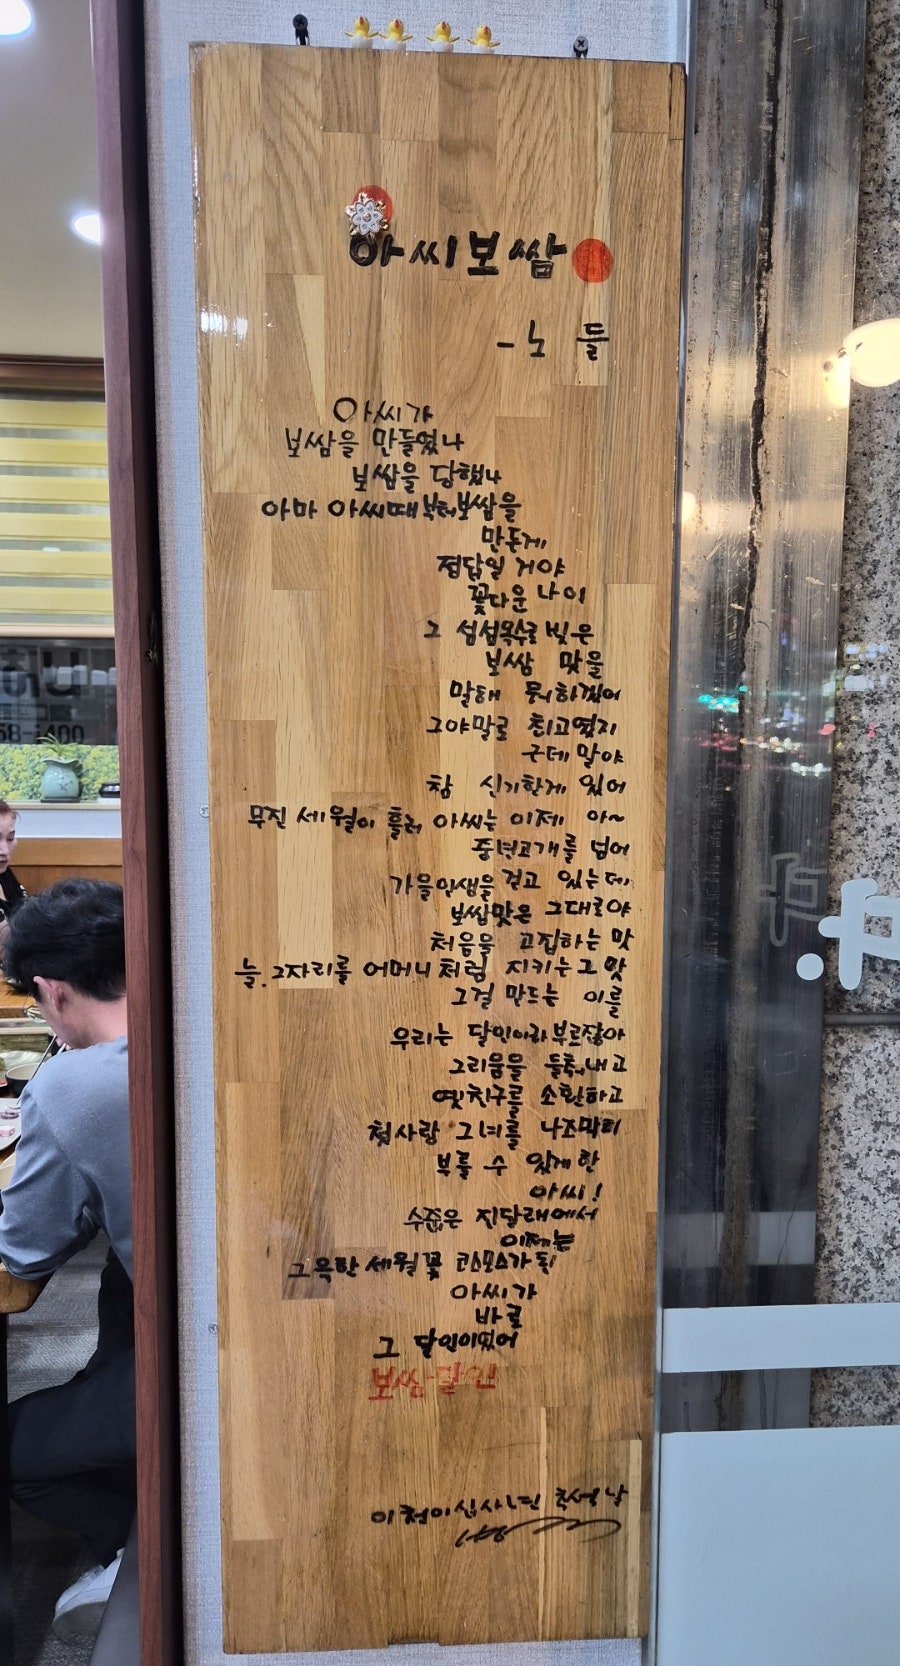 아씨보쌈
- 노 들
아씨가
보쌈을 만들었나
보쌈을 당했나
아마 아씨때부터보쌈을
만든게
정답일 거야
꽃다운 나이
그 섬섬옥수로 빚은
보쌈 맛을
말해 뭐하겠어
그야말로 최고였지
근데 말야
참 신기한게 있어
무진 세월이 흘러 아씨는 이제 아~
중년고개를 넘어
가을인생을 걷고 있는데
보쌈맛은 그대로야
처음을 고집하는 맛
늘. 그자리를 어머니처럼 지키는 그 맛
그걸 만드는 이를
우리는 달인이라 부르잖아
그리움을 들춰내고
옛친구를 소환하고
첫사랑 그녀를 나조막히
부를 수 있게한
아씨!
수줍은 진달래에서
이제는
그윽한 세월꽃 코스모스가 된
아씨가
바로
그 달인이였어
보쌈달인
이천이십사년 추석날